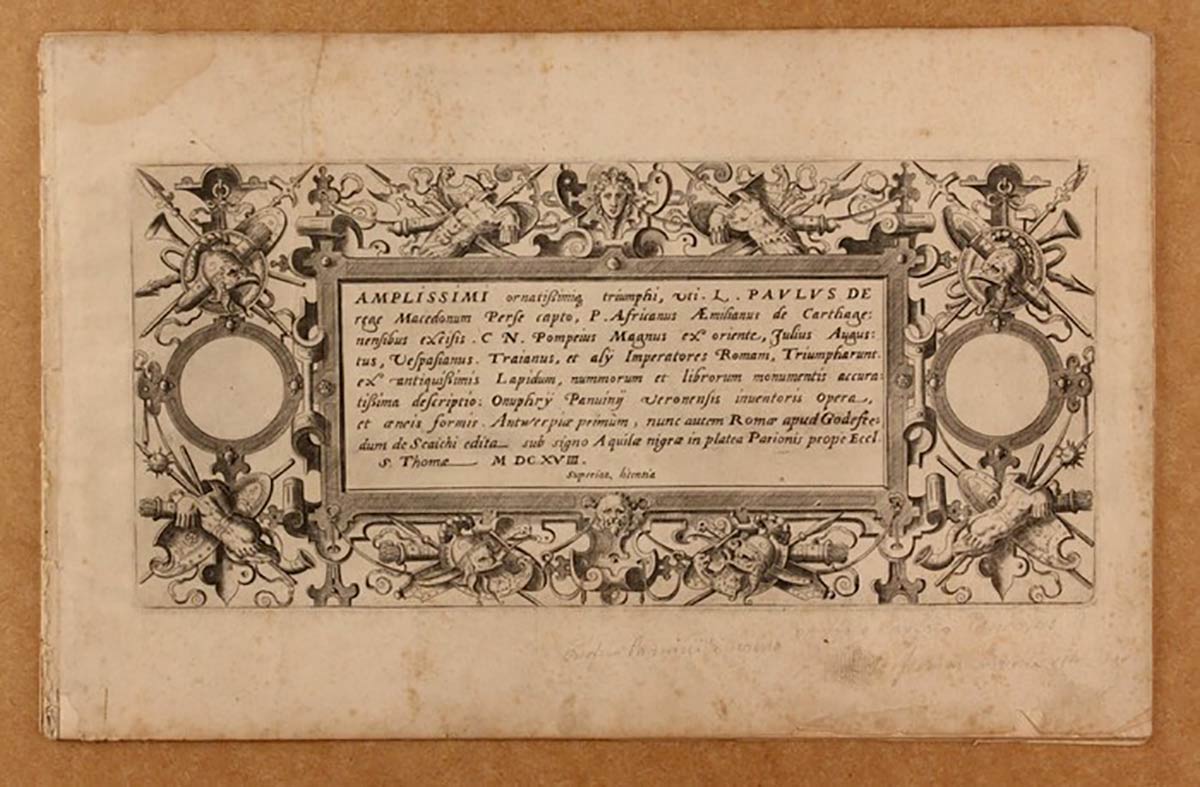 AMPLISSIMI ornatißimiq triumphi, uti. L. PAVLVS DE
rege Macedonum Perse capto, P. Africanus Æmilianus de Carthage:
nensibus excisis. C N. Pompeius Magnus ex oriente, Julius Augus:
tus, Vespasianus. Traianus, et alÿ Imperatores Romani, Triumpharunt.
ex antiquißimis Lapidum, nummorum et librorum monumentis accura:
tißima descriptio: Onuphrÿ Panuinÿ Veronensis inuentoris Opera,
et æneis formis. Antwerpiæ primum, nunc autem Romæ apud Godefre:
dum de Scaichi edita sub signo Aquilæ nigræ in platea Parionis prope Eccl.
S. Thomæ M DC.XVIII.
Superior, licentia